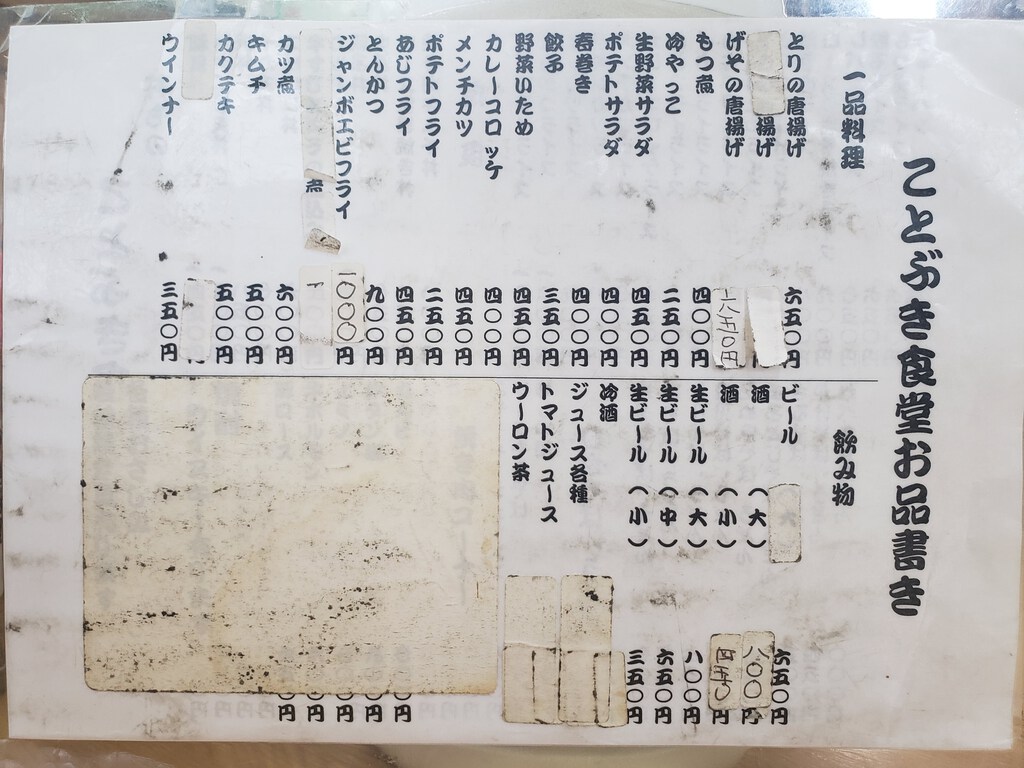 ことぶき食堂お品書き
一品料理
とりの唐揚げ 六五〇円
揚げ
げその唐揚げ 六五〇円
もつ煮 四〇〇円
冷やっこ 二五〇円
生野菜サラダ 四五〇円
ポテトサラダ 四〇〇円
春巻き 四〇〇円
餃子 三五〇円
野菜いため 四五〇円
カレーコロッケ 四〇〇円
メンチカツ 四五〇円
ポテトフライ 二五〇円
あじフライ 四五〇円
とんかつ 九〇〇円
ジャンボエビフライ 一〇〇〇円
煮
カツ煮 六〇〇円
キムチ 五〇〇円
カクテキ 五〇〇円
ウインナー 三五〇円
飲み物
ビール 六五〇円
酒（大） 八〇〇円
酒（小） 四五〇円
生ビール（大） 八〇〇円
生ビール（中） 六五〇円
生ビール（小） 三五〇円
冷酒
ジュース各種
トマトジュース
ウーロン茶
〇円
〇円
〇円
〇円
〇円